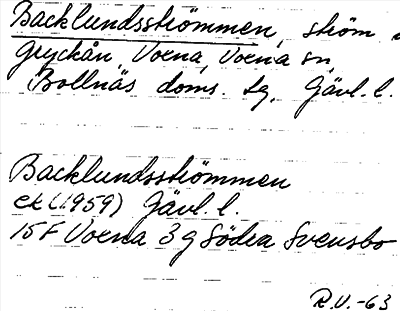 Backlundsströmmen, ström
Gryckån, Voxna, Voxna sn,
Bollnäs doms. tg, Gävl. l.
Backlundsströmmen
ek (1959) Gävl. l.
15F Voxna 3g Södra Svensbo
R.V. -63